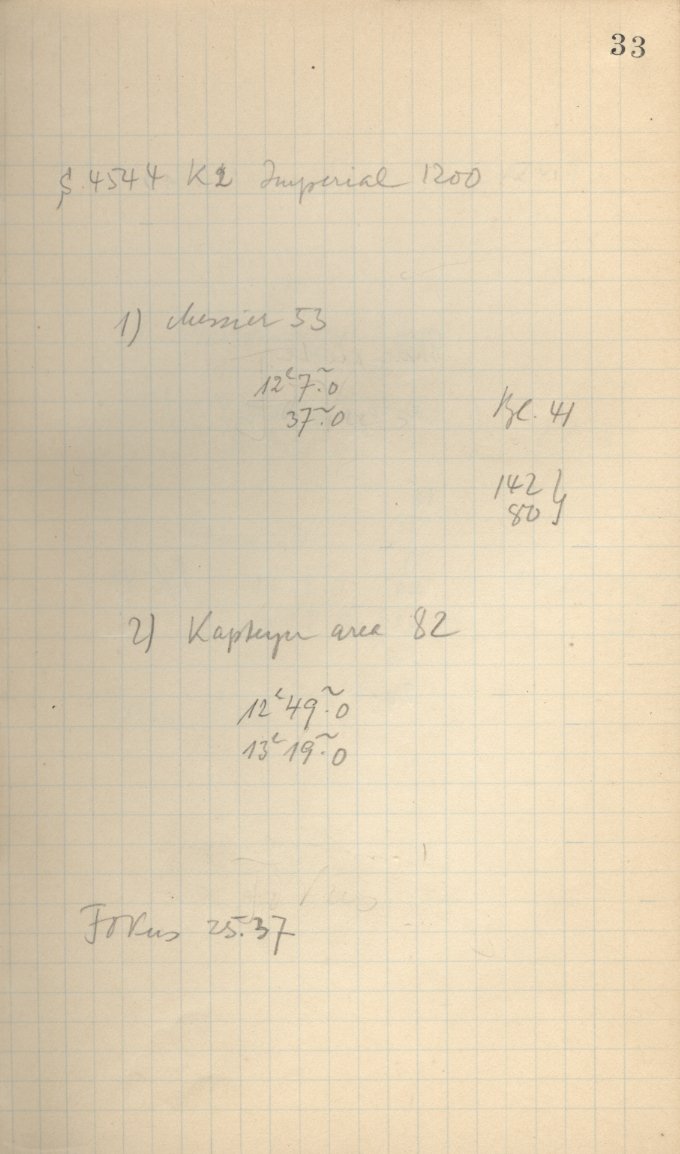 33
S 4544 K2 Imperial 1200
1) Messier 53
12ʰ 7ᵐ.0
37ᵐ.0
Bl. 41
142 }
80 }
2) Kapteyn area 82
12ʰ 49ᵐ.0
13ʰ 19ᵐ.0
Fokus 25.37